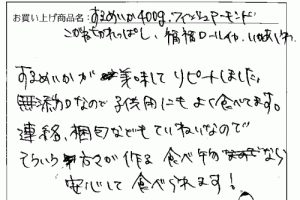 お買い上げ商品名：するめいか400g、フィッシュアーモンド
こがねちかれっぱし、稲稲ロールイカ、いわあじわ
するめいかが美味してリピートしました。
無添加なので子供用にもよく食べてます。
連絡、梱包などもていねいなので
そういう方々が作る食べ物なら
安心して食べられます！